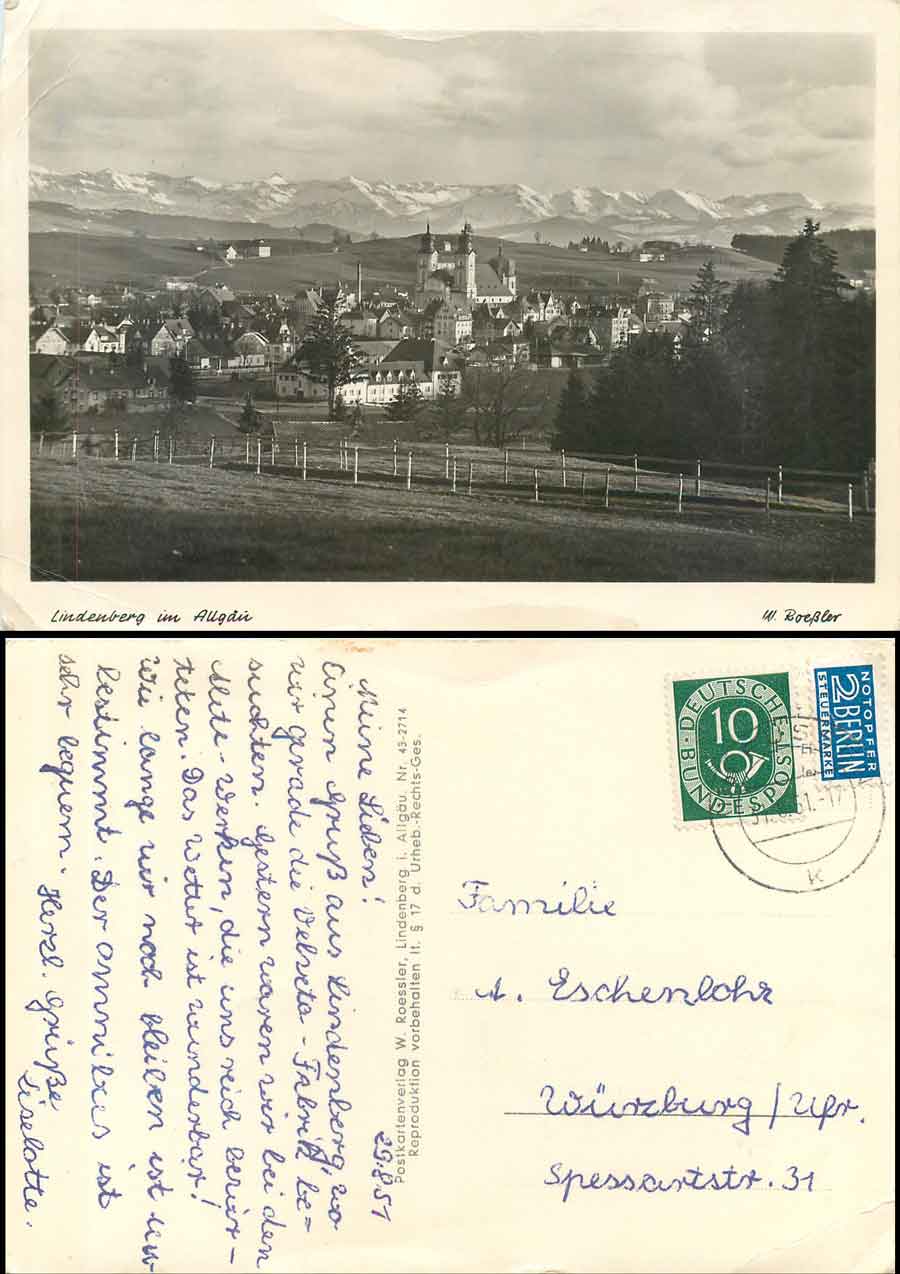 Lindenberg im Allgäu
W. Roeßler
29.8.51
Meine Lieben!
Einen Gruß aus Lindenberg, wo
wir gerade die Velveta-Fabrik be=
suchten. Gestern waren wir bei den
Alete-Werken, die uns reich bewir-
teten. Das Wetter ist wunderbar!
Wie lange wir noch bleiben ist un-
bestimmt. Der Omnibus ist
sehr bequem. Herzl. Grüße
Liselotte.
Postkartenverlag W. Roessler, Lindenberg i. Allgäu. Nr. 43-2714
Reproduktion vorbehalten lt. § 17 d. Urheb.-Rechts-Ges.
DEUTSCHE
BUNDESPOST
10
NOTOPFER
2 BERLIN
STEUERMARKE
.51.-17
k
Familie
A. Eschenlohr
Würzburg/Ufr.
Spessartstr. 31